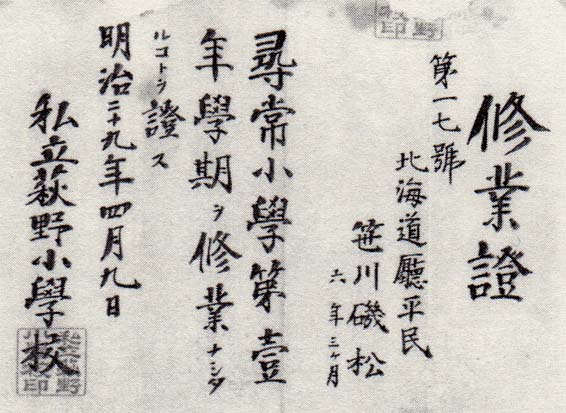 修業證
第一七號
北海道廳平民
笹川磯松
六年三ヶ月
尋常小學第壹
年學期ヲ修業ナシタ
ルコトヲ證ス
明治二十九年四月九日
私立萩野小學校